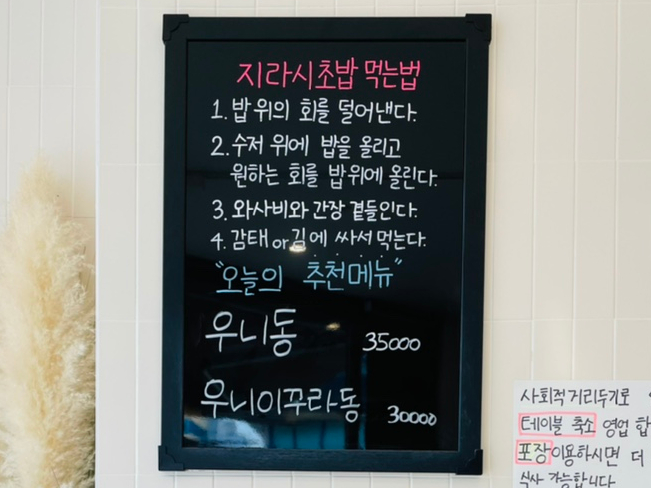 지라시초밥 먹는법
1. 밥 위의 회를 덜어낸다.
2. 수저 위에 밥을 올리고
원하는 회를 밥위에 올린다.
3. 와사비와 간장 곁들인다.
4. 감태 or 김에 싸서 먹는다.
"오늘의 추천메뉴"
우니동 35000
우니이꾸라동 30000
사회적거리두기로
테이블 축소 영업 합
포장이용하시면 더
식사 가능합니다